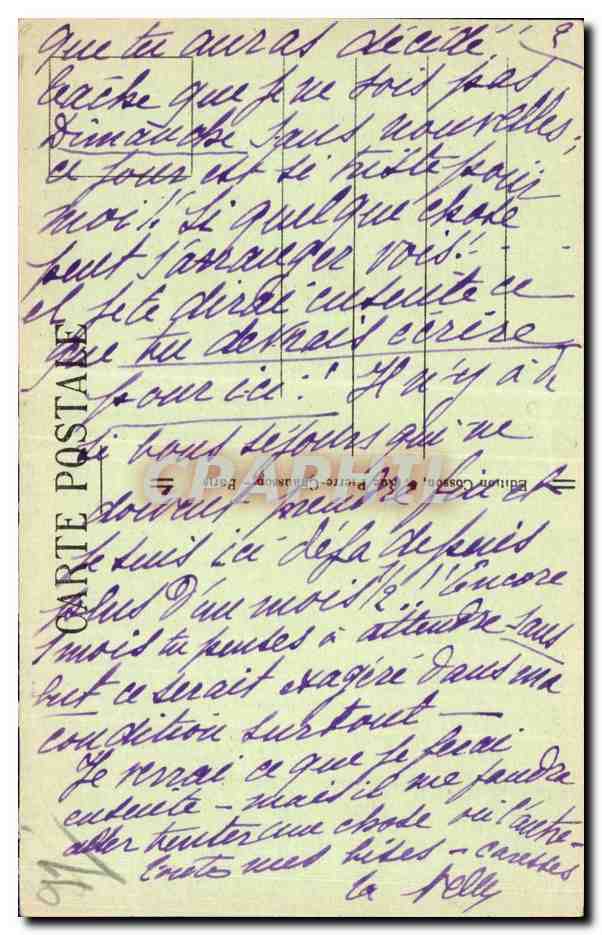 que tu auras décidé
tâche que je ne sois pas
Dimanche sans nouvelles ;
ce jour est si triste pour
moi !! Si quelque chose
peut s'arranger vois ! - -
et je te dirai ensuite ce
que tu devrais écrire
pour ici : ! Il n'y a
si bons séjours qui ne
doivent prendre fin et
je suis ici déjà depuis
plus d'un mois 1/2 !! Encore
1 mois tu penses à attendre sans
but ce serait exagéré dans ma
condition surtout —
Je verrai ce que je ferai
ensuite - mais il me faudra
aller tenter une chose ou l'autre -
toutes mes bises - caresses
ta Nelly
CARTE POSTALE
Edition Cosson, Rue Pierre-Chausson - Paris
CRAPHIL